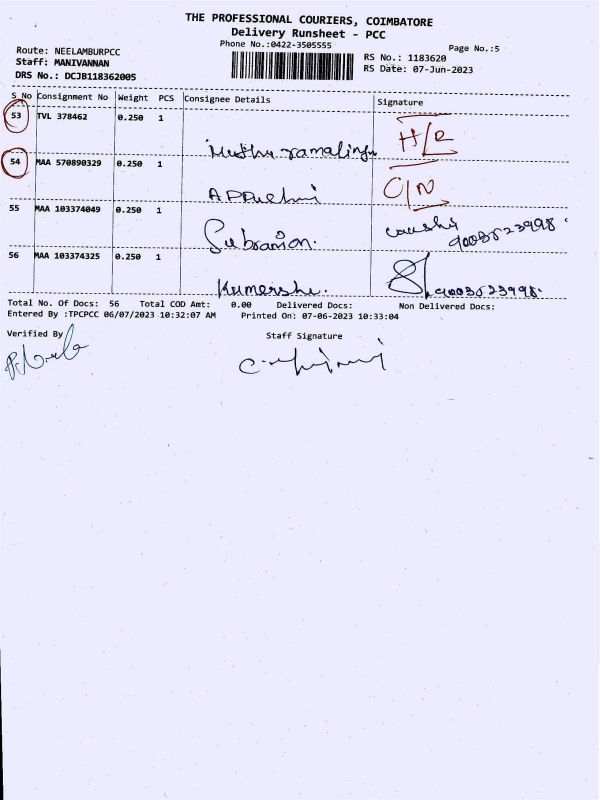 THE PROFESSIONAL COURIERS, COIMBATORE
Delivery Runsheet - PCC
Phone No.:0422-3505555
Page No.:5
Route: NEELAMBURPCC
Staff: MANIVANNAN
DRS No.: DCJB118362005
RS No.: 1183620
RS Date: 07-Jun-2023
S No Consignment No Weight PCS Consignee Details Signature
53 TVL 378462 0.250 1
H/R
54 MAA 570890329 0.250 1
55 MAA 103374049 0.250 1
Subramian.
56 MAA 103374325 0.250 1
9003523998.
Total No. Of Docs: 56 Total COD Amt: 0.00 Delivered Docs: Non Delivered Docs:
Entered By :TPCPCC 06/07/2023 10:32:07 AM Printed On: 07-06-2023 10:33:04
Verified By
Staff Signature